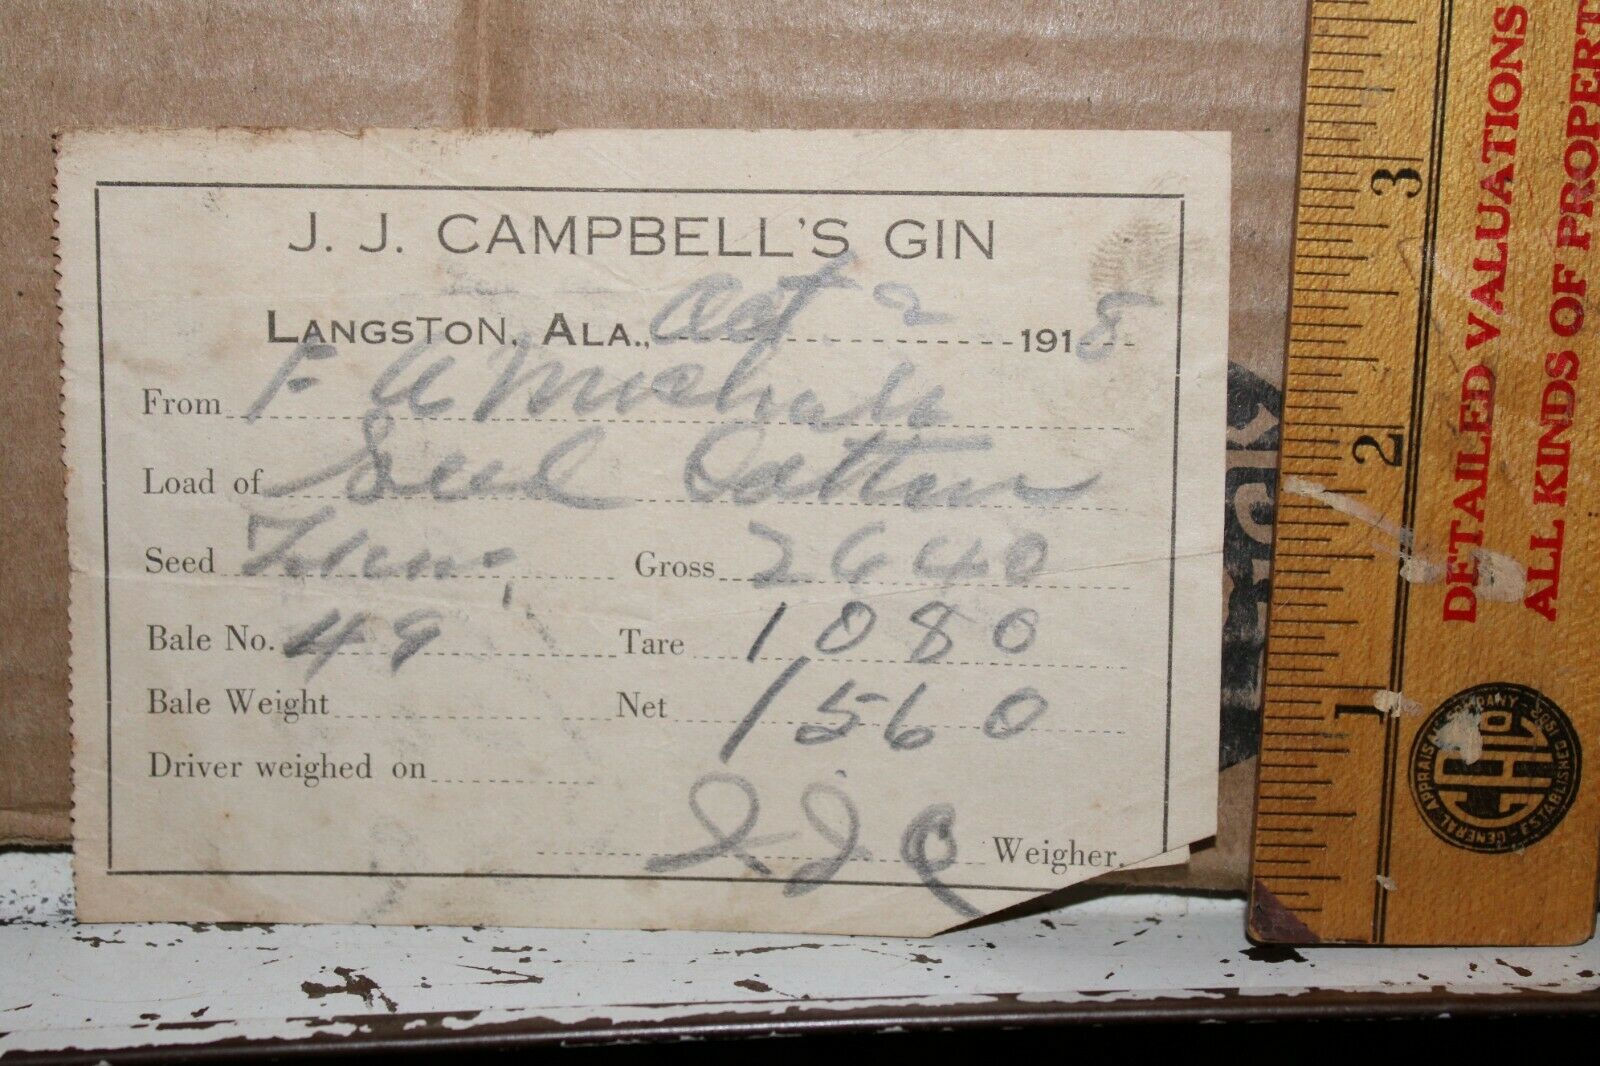 J. J. CAMPBELL'S GIN
LANGSTON, ALA., Oct 2 1918
From F A
Load of Seed Cotton
Seed Gross 2640
Bale No. 49 Tare 1080
Bale Weight Net 1560
Driver weighed on
J. J. C Weigher.
3
2
1
DETAILED VALUATIONS
ALL KINDS OF PROPERT
GENERAL APPRAISAL COMPANY
ESTABLISHED 1905